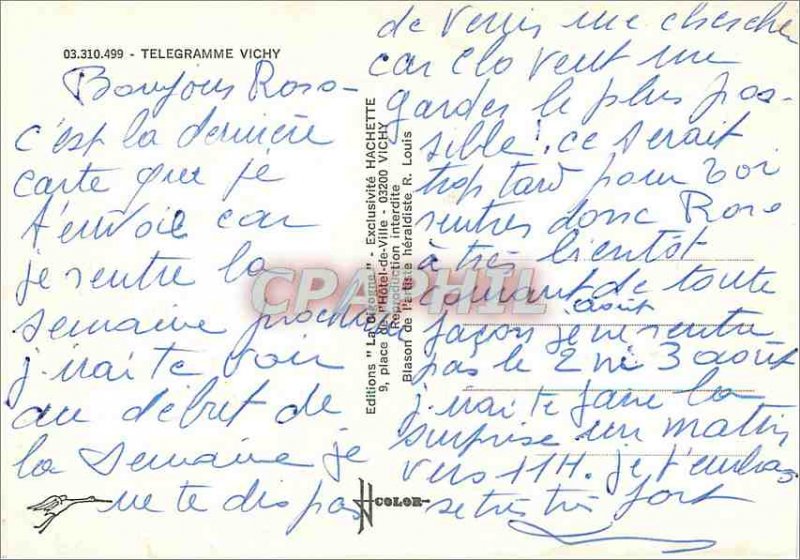 03.310.499 - TELEGRAMME VICHY
Bonjour Rose
c'est la dernière
carte que je
t'envoie car
je rentre la
semaine prochaine
j'irai te voir
au début de
la semaine je
ne te dis pas
Editions "La Cigogne" - Exclusivité HACHETTE
9, place de l'Hôtel-de-Ville - 03200 VICHY
Reproduction interdite
Blason de l'artiste héraldiste R. Louis
COLOR
CPAPHIL
de venir me chercher
car Clo veut me
garder le plus pos-
sible, ce serait
trop tard pour toi
rentrer donc Rose
à très bientôt
courant de toute
août
façon je ne rentre
pas le 2 ni 3 août
j'irai te faire la
surprise un matin
vers 11H. je t'embras
se très très fort